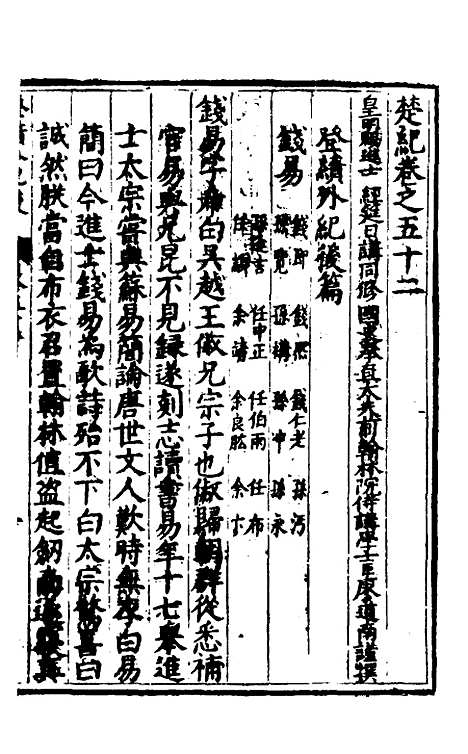 楚紀卷之五十二
皇明賜進士 經筵日講同修 國史奉直大夫前翰林院侍講學士臣廖道南謹撰
登績外紀後篇
錢易 錢即 錢熙 錢仁老 孫沔
孫覽 孫構 孫申 孫永
任申正 任伯雨 任布
余靖 余良肱 余卞
錢易字希白吳越王俶兄宗子也俶歸朝群從悉補
官易與兄昆不見録遂刻志讀書易年十七舉進
士太宗嘗與蘇易簡論唐世文人歎時無李白易
簡曰今進士錢易為歌詩殆不下白太宗驚喜曰
誠然朕當自布衣召置翰林值盜起劒南遂